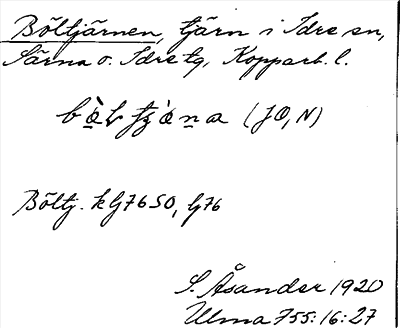 Böltjärnen, tjärn i Idre sn,
Särna o. Idre tg, Kopparb. l.
(JO, N)
Böltj. k G7650, G76
S. Åsander 1920
Ulma 755:16:27